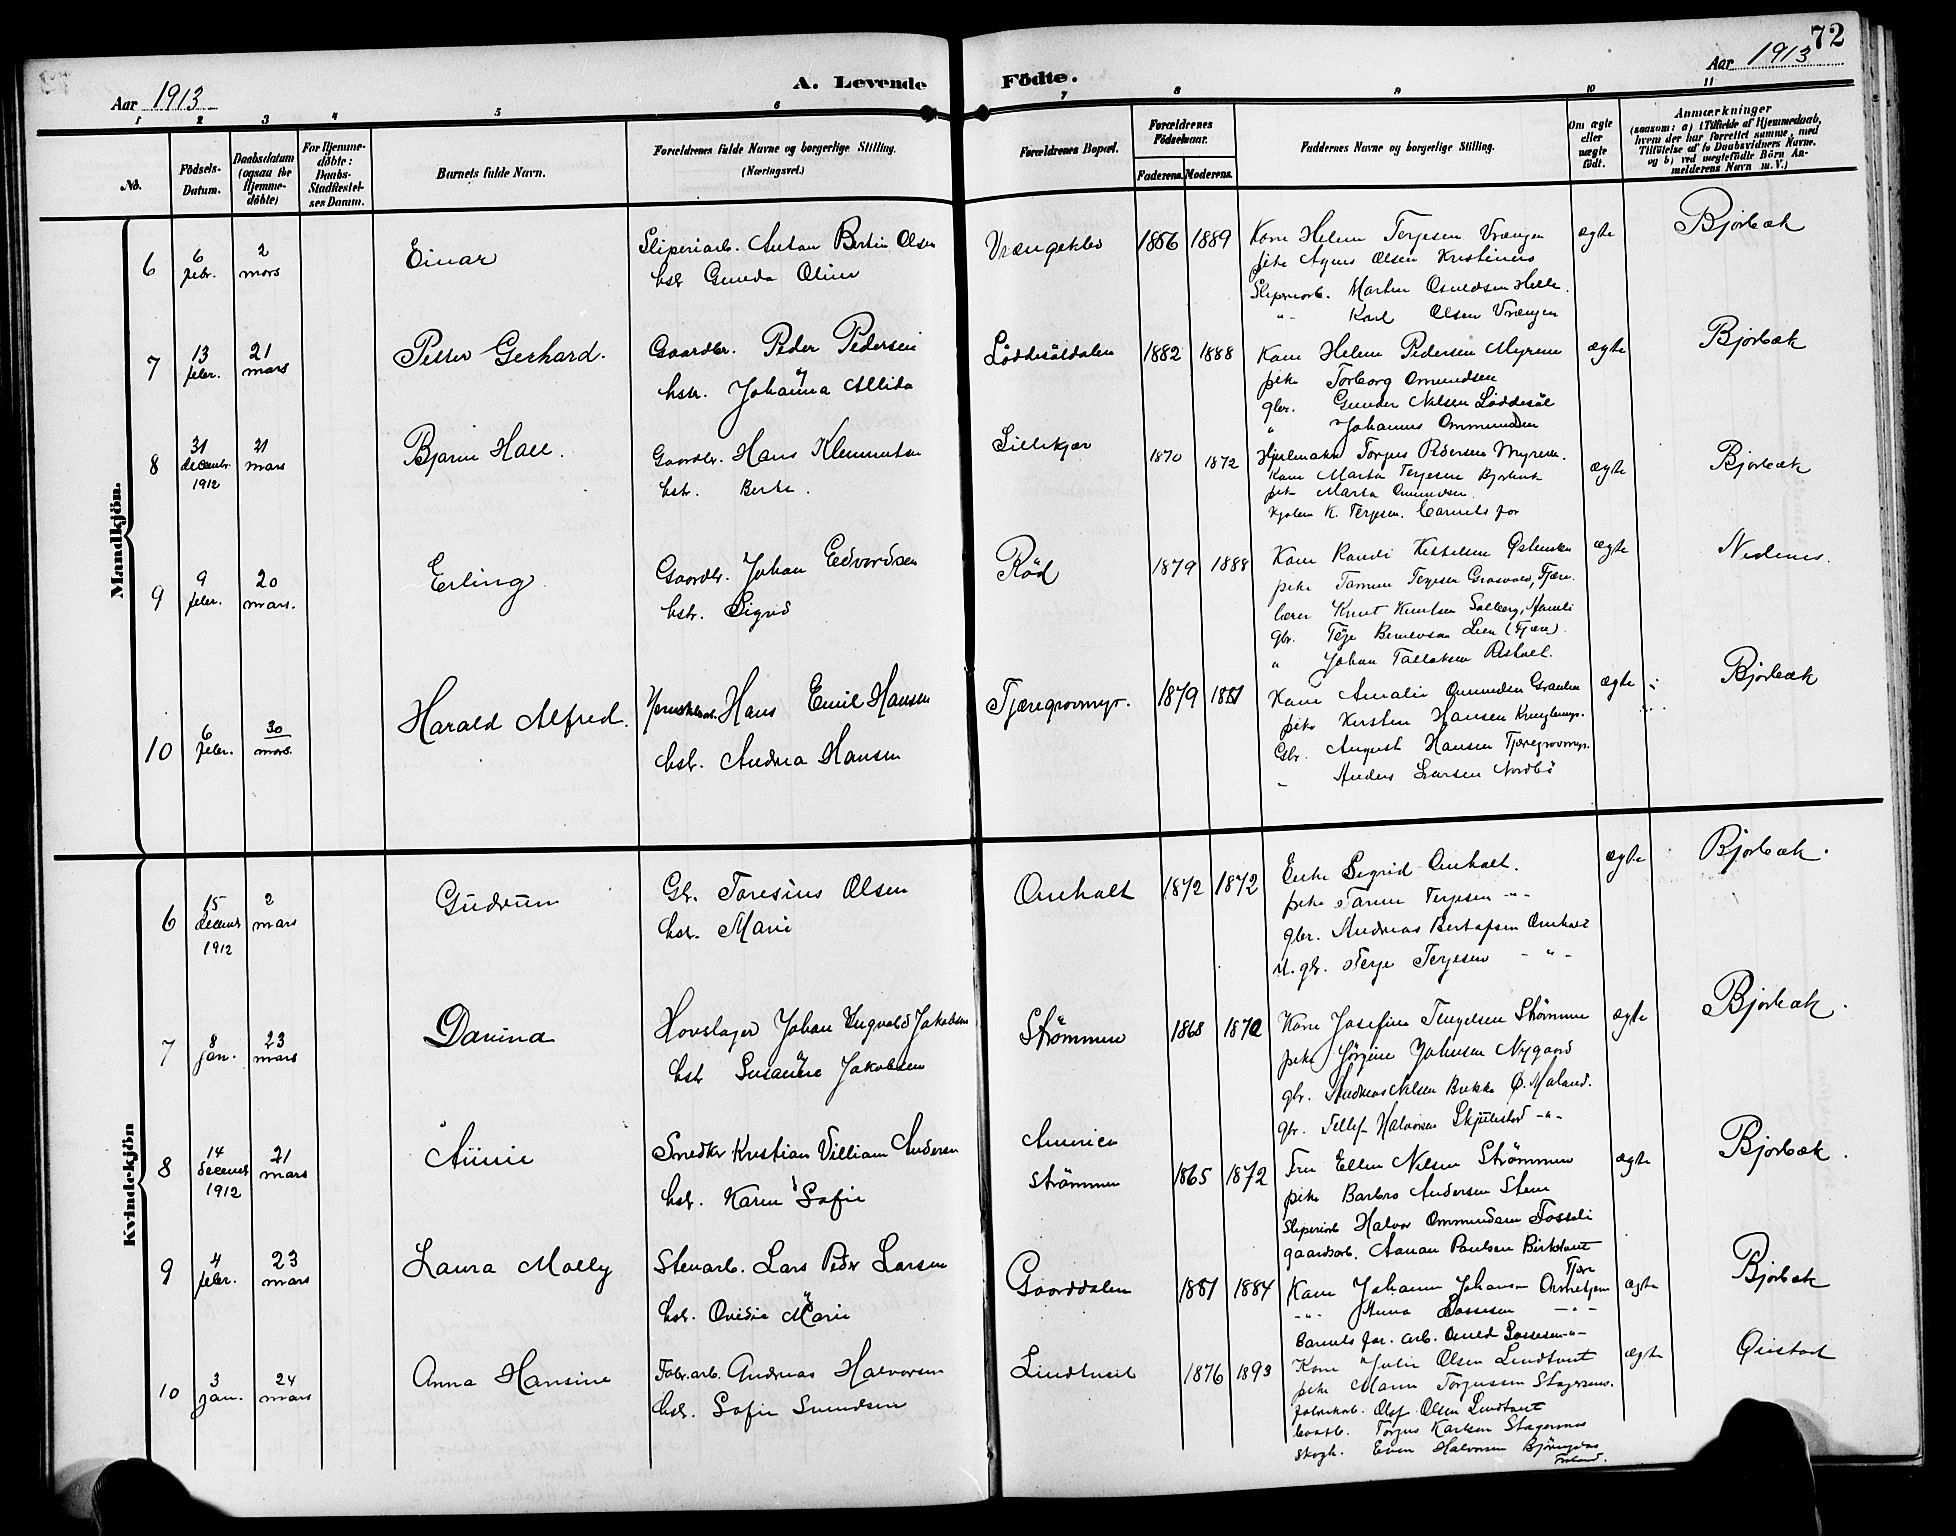 72
Aar 1913
A. Levende Födte.
Aar 1913
1 2 3 4 5 6 7 8 9 10 11
No.
Födsels-
Datum.
Daabsdatum
(ogsaa for
Hjemme-
döbte)
For Hjemme-
döbte:
Daabs-
Stadfæstel-
ses Datum.
Barnets fulde Navn.
Forældrenes fulde Navne og borgerlige Stilling.
(Næringsvei.)
Forældrenes Bopæl.
Forældrenes
Födselsaar.
Faderens. Moderens.
Faddernes Navne og borgerlige Stilling.
Om ægte
eller
uægte
födt.
Anmærkninger
(saasom: a) i Tilfælde af Hjemmedaab,
hvem der har forrettet samme, med
Tilföielse af to Daabsvidners Navne.
og b) ved uægtefödte Börn An-
melderens Navn m. V.)
Mandkjön.
6
6 febr.
2 mars
Einar
Sliperiarb. Anton Bertin Olsen
hstr Gunda Oline
1886 1889
Kone Helene Terjesen Vrængen
pike Agnes Olsen
Sliperiarb. Martin Osuldsen Helle.
-"- Karl Olsen Vrængen
ægte
Bjorbæk
7
13 febr.
21 mars
Petter Gerhard.
Gaardbr. Peder Pedersen
hstr. Johanna Allida
Løddesøldalen
1882 1888
Kone Helene Pedersen Myrene
pike Torborg Omundsen
gbr. Gunder Nilsen Løddesøl
" Johannes Ommundsen
ægte
Bjorbæk
8
31 decembr. 1912
21 mars
Bjarne Hall.
Gaardbr. Hans Klemmetsen
hstr. Berte.
Lillekjær
1870 1872
Torjus Pedersen Myrene.
Kone Marta Terjesen Bjorbæk
pike Marta Omundsen.
K. Terjesen. Barnets far
ægte
Bjorbæk
9
9 febr.
20 mars.
Erling.
Gaardbr. Johan Edvardsen
hstr. Sigrid
Rød
1879 1888
Kone Randi Kittelsen
pike Tamine Terjesen Grasvold, Fjære.
lærer Knut Knutsen Solberg, Åmli
gbr. Terje Berulvsen Lien (Fjære).
" Johan Tallaksen
ægte
Nedenes.
10
6 febr.
30 mars.
Harald Alfred.
Hans Emil Hansen
hstr. Andrea Hansen
Tjæregrovmyr.
1879 1881
Kone Amalie Omundsen
pike Kirsten Hansen
Gbr. August Hansen Tjæregrovmyr.
" Anders Larsen Nordbø
ægte
Bjorbæk
Kvindekjön
6
15 decemb 1912
2 mars
Gudrun
Gb. Toresius Olsen
hstr. Marie
Omholt
1872 1872
Enke Sigrid Omholt.
pike Tamine Terjesen -"-
gbr. Andreas Bertofsen Omholt
u. gbr. Terje Terjesen -"-
ægte
Bjorbæk.
7
8 jan.
23 mars
Davina
Hovslager Johan Ingvald Jakobsen
hstr Susanne Jakobsen
Strømmen
1868 1872
Kone Josefine Tengelsen Strømmen
pike Jørgine Johnsen Nygaard
gbr. Andreas Nilsen Brekka Ø. Moland.
gbr. Tellef Halvorsen -"-
ægte
Bjorbæk.
8
14 decemb 1912
21 mars
Annie
Smedker Kristian Villiam Andersen
hstr. Karen Sofie
Amerien
Strømmen
1865 1872
Fru Ellen Nilsen Strømmen
pike Barbro Andersen Stene
Sliperiarb Halvor Ommundsen Fosseli
gaardsarb. Aanan Paulsen Birketvet
Fjære
ægte
Bjorbæk.
9
4 febr.
23 mars
Laura Molly
Stenarb. Lars Peder Larsen
hstr. Ovidia Marie
Gaarddalen
1881 1884
Kone Johanne Johansen
-"- Anna Lassesen -"-
Barnets far. arb. Osuld Lassesen -"-
ægte
Bjorbæk
10
3 jan.
24 mars
Anna Hansine
Fabr.arb. Andreas Halvorsen
hstr. Sofie Svendsen
Lindtveit
1876 1893
Kone Julie Olsen Lindtveit
pike Maren Torjussen Stagerness.
fabrikarb. Olaf Olsen Lindtveit
Torjus Karlsen Stagernes
skogh. Even Halvorsen
Froland.
ægte
Øiestad